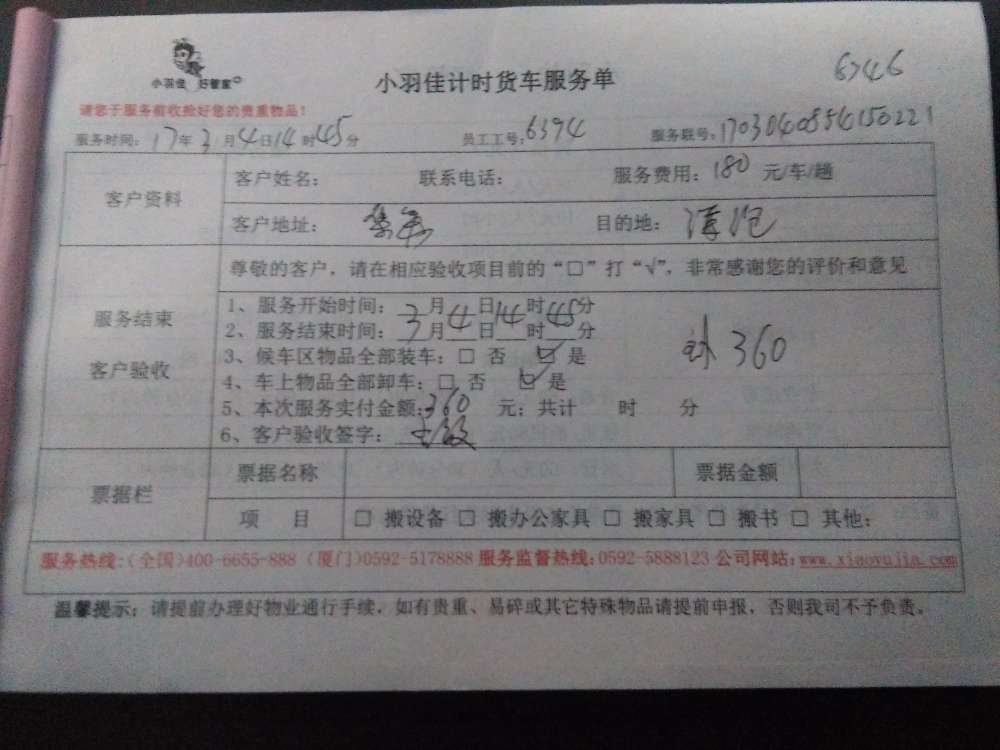 小羽佳 好管家
小羽佳计时货车服务单
6746
请您于服务前收捡好您的贵重物品!
服务时间: 17年3月4日14时45分 员工工号:6394 服务联号:170304085415022 1
客户资料
客户姓名: 联系电话: 服务费用:180 元/车/趟
客户地址: 集美 目的地:
尊敬的客户,请在相应验收项目前的“□”打“√”,非常感谢您的评价和意见
服务结束
客户验收
1、服务开始时间: 3月4日14时45分
2、服务结束时间: 3月4日14时45分
3、候车区物品全部装车:□ 否 ☑ 是
4、车上物品全部卸车:□ 否 ☑ 是
5、本次服务实付金额:360 元;共计 时 分
6、客户验收签字:
360
票据栏
票据名称 票据金额
项 目 □ 搬设备 □ 搬办公家具 □ 搬家具 □ 搬书 □ 其他:
服务热线:(全国)400-6655-888 (厦门)0592-5178888 服务监督热线:0592-5888123 公司网站:www.xiaoyujia.com
温馨提示:请提前办理好物业通行手续,如有贵重、易碎或其它特殊物品请提前申报,否则我司不予负责。